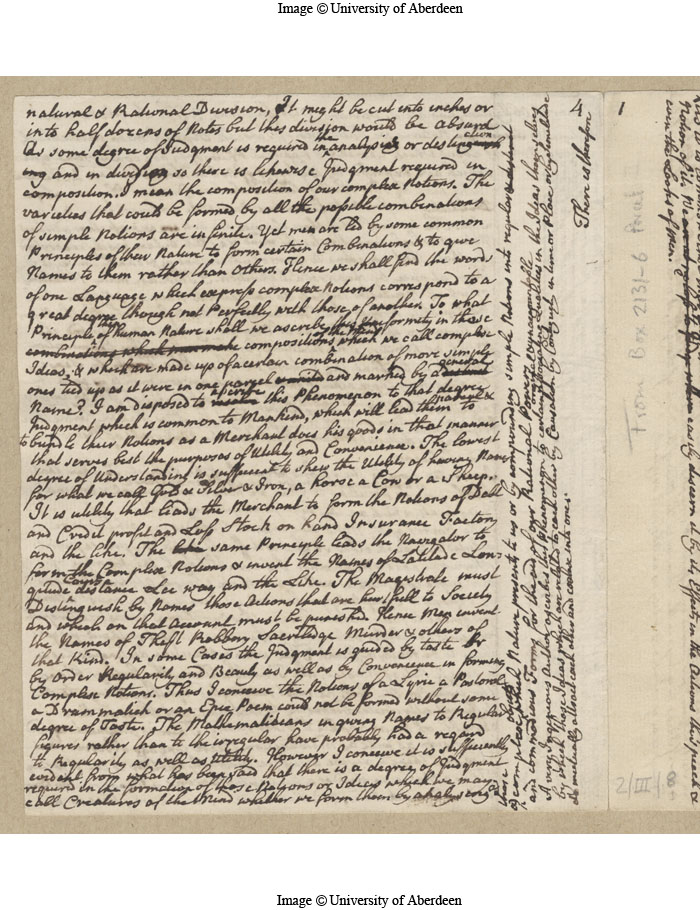 Image © University of Aberdeen
natural & Rational Division, It might be cut into inches or
into half dozens of Notes but this division would be absurd
As some degree of Judgment is required in the analysis or distinction
and in dividing so there is likewise Judgment required in
composition. I mean the composition of our complex Notions. The
varieties that could be formed by all the possible combinations
of simple Notions are infinite. Yet men are led by some common
Principles of their Nature to form certain Combinations & to give
Names to them rather than others. Hence we shall find the words
of one Language which express complex Notions correspond to a
great degree though not Perfectly with those of another. To what
Principle of the human Nature shall we ascribe this uniformity in these
combinations which men make compositions which we call complex
Ideas, & which are made up of a certain combination of more simple
ones tied up as it were in one parcel and marked by a general
Name? I am disposed to ascribe this Phenomenon to that degree
Judgment which is common to Mankind, which will lead them natural &
to bundle their Notions as a Merchant does his goods in that manner
that serves best the purposes of Utility and Convenience. The lowest
degree of Understanding is sufficient to shew the Utility of having Names
for what we call Gold & Silver & Iron, a horse a Cow or a Sheep.
It is utility that leads the Merchant to form the Notions of Debt
and Credit profit and Loss Stock on hand Insurance Factory
and the like. The same Principle leads the Navigator to
form the Complex Notions & invent the Names of Latitude Lon-
gitude Course distance Lee way and the Like. The Magistrate must
Distinguish by Names those Actions that are hurtfull to Society
and which on that Account must be punished. Hence Men invent
the Names of Theft Robbery Sacriledge Murder & others of
that Kind. In some Cases the Judgment is guided by taste Or
by Order Regularity and Beauty as well as by Convenience in forming
Complex Notions. Thus I conceive the Notions of a Lyric a Pastoral
a Drammatick or an Epic Poem could not be formed without some
degree of Taste. The Mathematicians in giving Names to Regular
figures rather than to the irregular have probably had a regard
to Regularity as well as Utility. However I conceive it is sufficiently
evident from what has been said that there is a degree of Judgment
required in the formation of those Notions or Ideas which we may
call Creatures of the Mind whether we form them by analysing
objects which Nature presents to us or by compounding simple Notions into regular
and commodious Forms for the end of our Rational Powers
A very Ingenious Author ascribes this Phenomenon to certain associating Qualities in the Ideas themselves
by which those Ideas which are related to each other by Causation by Contiguity in time or Place or by Similitude
do mutually attract each other and coalesce into one.
4
There is therefor
1
From Box 2131-6 Pact
2/III/8
Image © University of Aberdeen